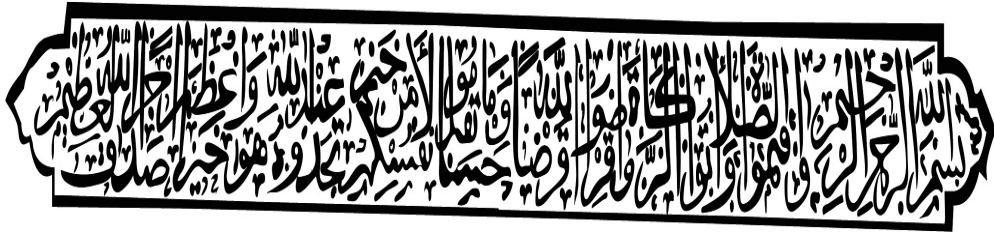 بسم الله الرحمن الرحيم وأقيموا الصلاة وآتوا الزكاة وأقرضوا الله قرضا حسنا وما تقدموا لأنفسكم من خير تجدوه عند الله هو خيرا وأعظم أجرا صدق الله العظيم